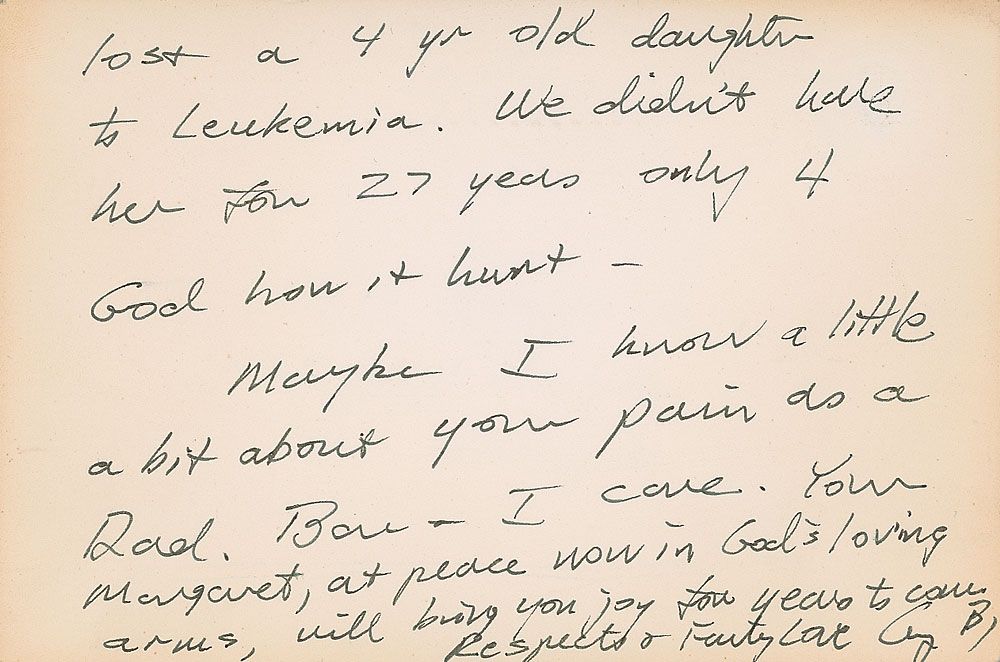 lost a 4 yr old daughter
to Leukemia. We didn't have
her for 27 years only 4
God how it hurt -
Maybe I know a little
a bit about your pain as a
Dad. Bar - I care. Your
Margaret, at peace now in God's loving
arms, will bring you joy for years to come
Respects + Love